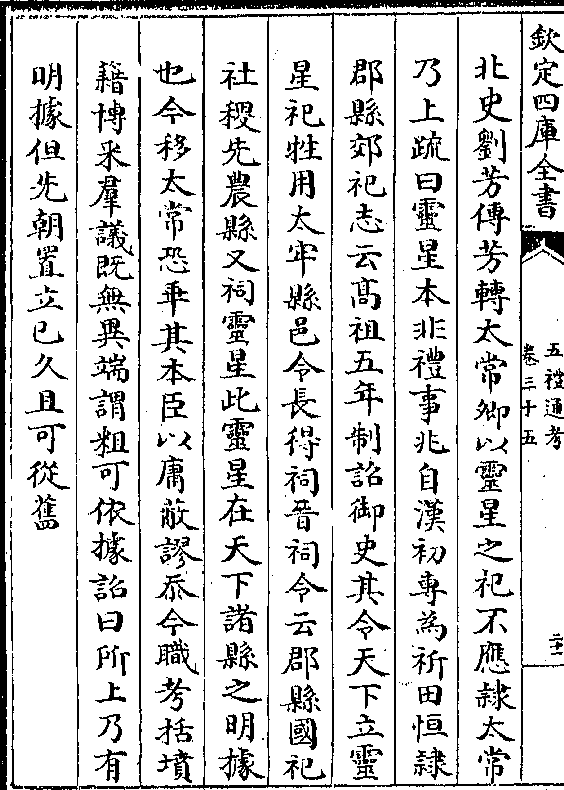 欽定四庫全書
五禮通考
卷三十五
二十一
北史劉芳傳芳轉太常卿以靈星之祀不應隸太常
乃上疏曰靈星本非禮事兆自漢初専為祈田恒隸
郡縣郊祀志云髙祖五年制詔御史其令天下立靈
星祀牲用太牢縣邑令長得祠晉祠令云郡縣國祀
社稷先農縣又祠靈星此靈星在天下諸縣之明據
也今移太常恐乖其本臣以庸蔽謬忝今職考括墳
籍博采羣議既無異端謂粗可依據詔曰所上乃有
明據但先朝置立已久且可從舊